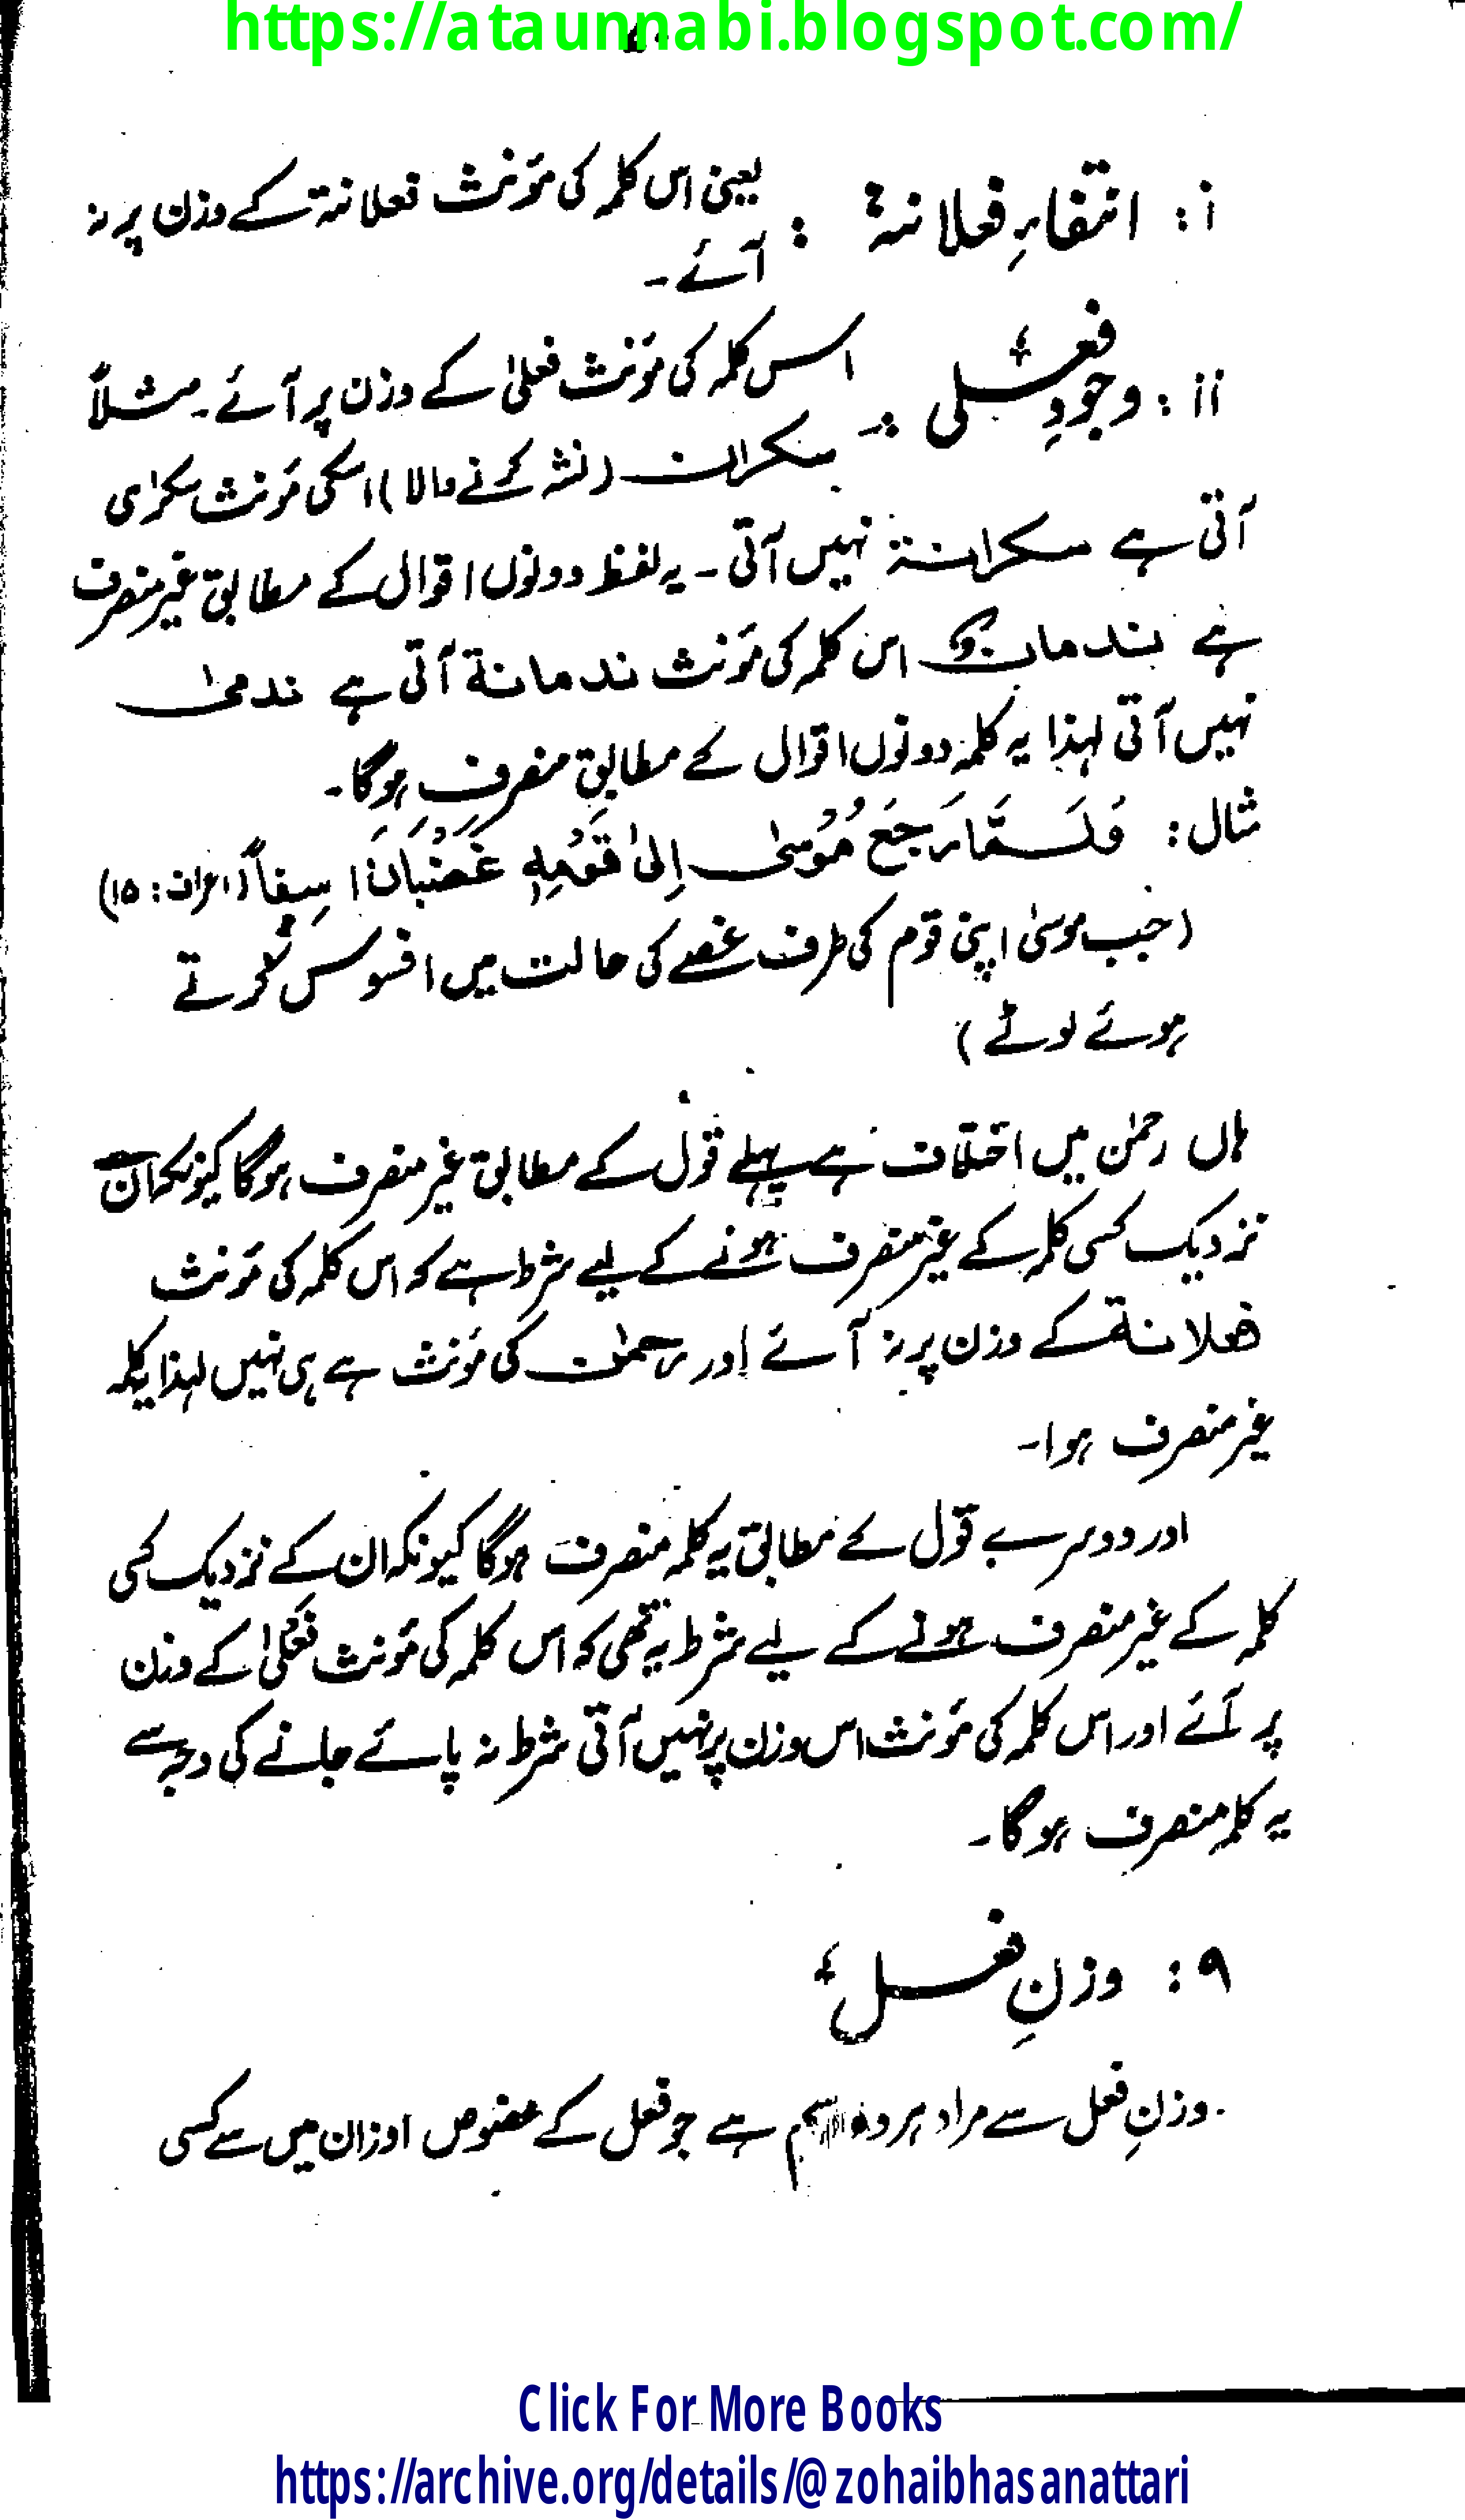 https://ataunnabi.blogspot.com/
i : انتفاءِ فعلانۃ : یعنی اس کلمہ کی مؤنث فعلانۃ کے وزن پر نہ
آئے۔
ii : وجودِ فعلیٰ : اس کلمہ کی مؤنث فعلیٰ کے وزن پر آئے۔ مثلاً
سکران (نشہ کرنے والا) اسکی مؤنث سکرٰی
آتی ہے سکرانۃ نہیں آتی۔ یہ لفظ دونوں اقوال کے مطابق غیر منصرف
ہے ندمان اس کلمہ کی مؤنث ندمانۃ آتی ہے ندمیٰ
نہیں آتی لہذا یہ کلمہ دونوں اقوال کے مطابق منصرف ہوگا۔
مثال : فَلَمَّا رَجَعَ مُوْسیٰ اِلیٰ قَوْمِهٖ غَضْبَانَ اَسِفاً (اعراف : ۱۵)
(جب موسیٰ اپنی قوم کی طرف غصے کی حالت میں افسوس کرتے
ہوئے لوٹے)
ہاں رحمٰن میں اختلاف ہے پہلے قول کے مطابق غیر منصرف ہوگا کیونکہ ان کے
نزدیک کسی کلمہ کے غیر منصرف ہونے کے لیے شرط ہے کہ اس کلمہ کی مؤنث
فعلانۃ کے وزن پر نہ آئے اور رحمٰن کی مؤنث ہے ہی نہیں لہذا یہ کلمہ
غیر منصرف ہوا۔
اور دوسرے قول کے مطابق یہ کلمہ منصرف ہوگا کیونکہ ان کے نزدیک کسی
کلمہ کے غیر منصرف ہونے کے لیے شرط یہ تھی کہ اس کلمہ کی مؤنث فَعْلیٰ کے وزن
پر آئے اور اس کلمہ کی مؤنث اس وزن پر نہیں آتی شرط نہ پائے جانے کی وجہ سے
یہ کلمہ منصرف ہوگا۔
۹ : وزنِ فعل
وزنِ فعل سے مراد ہر وہ اسم ہے جو فعل کے مخصوص اوزان میں سے کسی
Click For More Books
https://archive.org/details/@zohaibhasanattari